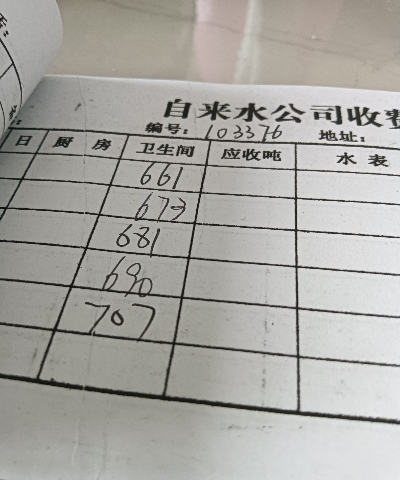 自来水公司收费
编号：103376 地址：
日 厨房 卫生间 应收吨 水表
661
673
681
690
707